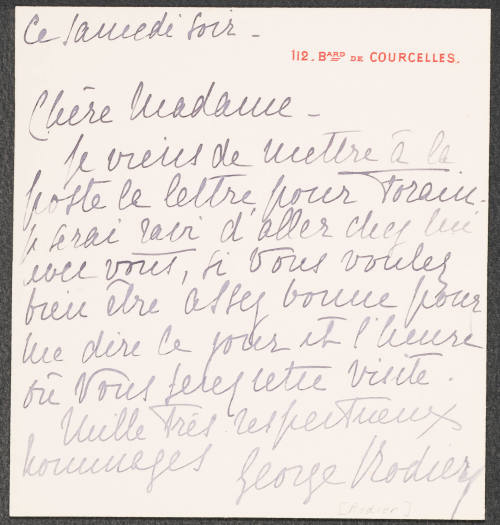 Ce Samedi Soir -
112. BARD DE COURCELLES.
Chère Madame -
Je viens de mettre à la
poste la lettre pour Forain.
Je serai ravi d'aller chez lui
avec vous, si vous voulez
bien être assez bonne pour
me dire le jour et l'heure
où vous ferez cette visite.
Mille très respectueux
hommages George Rodier
[Rodier]